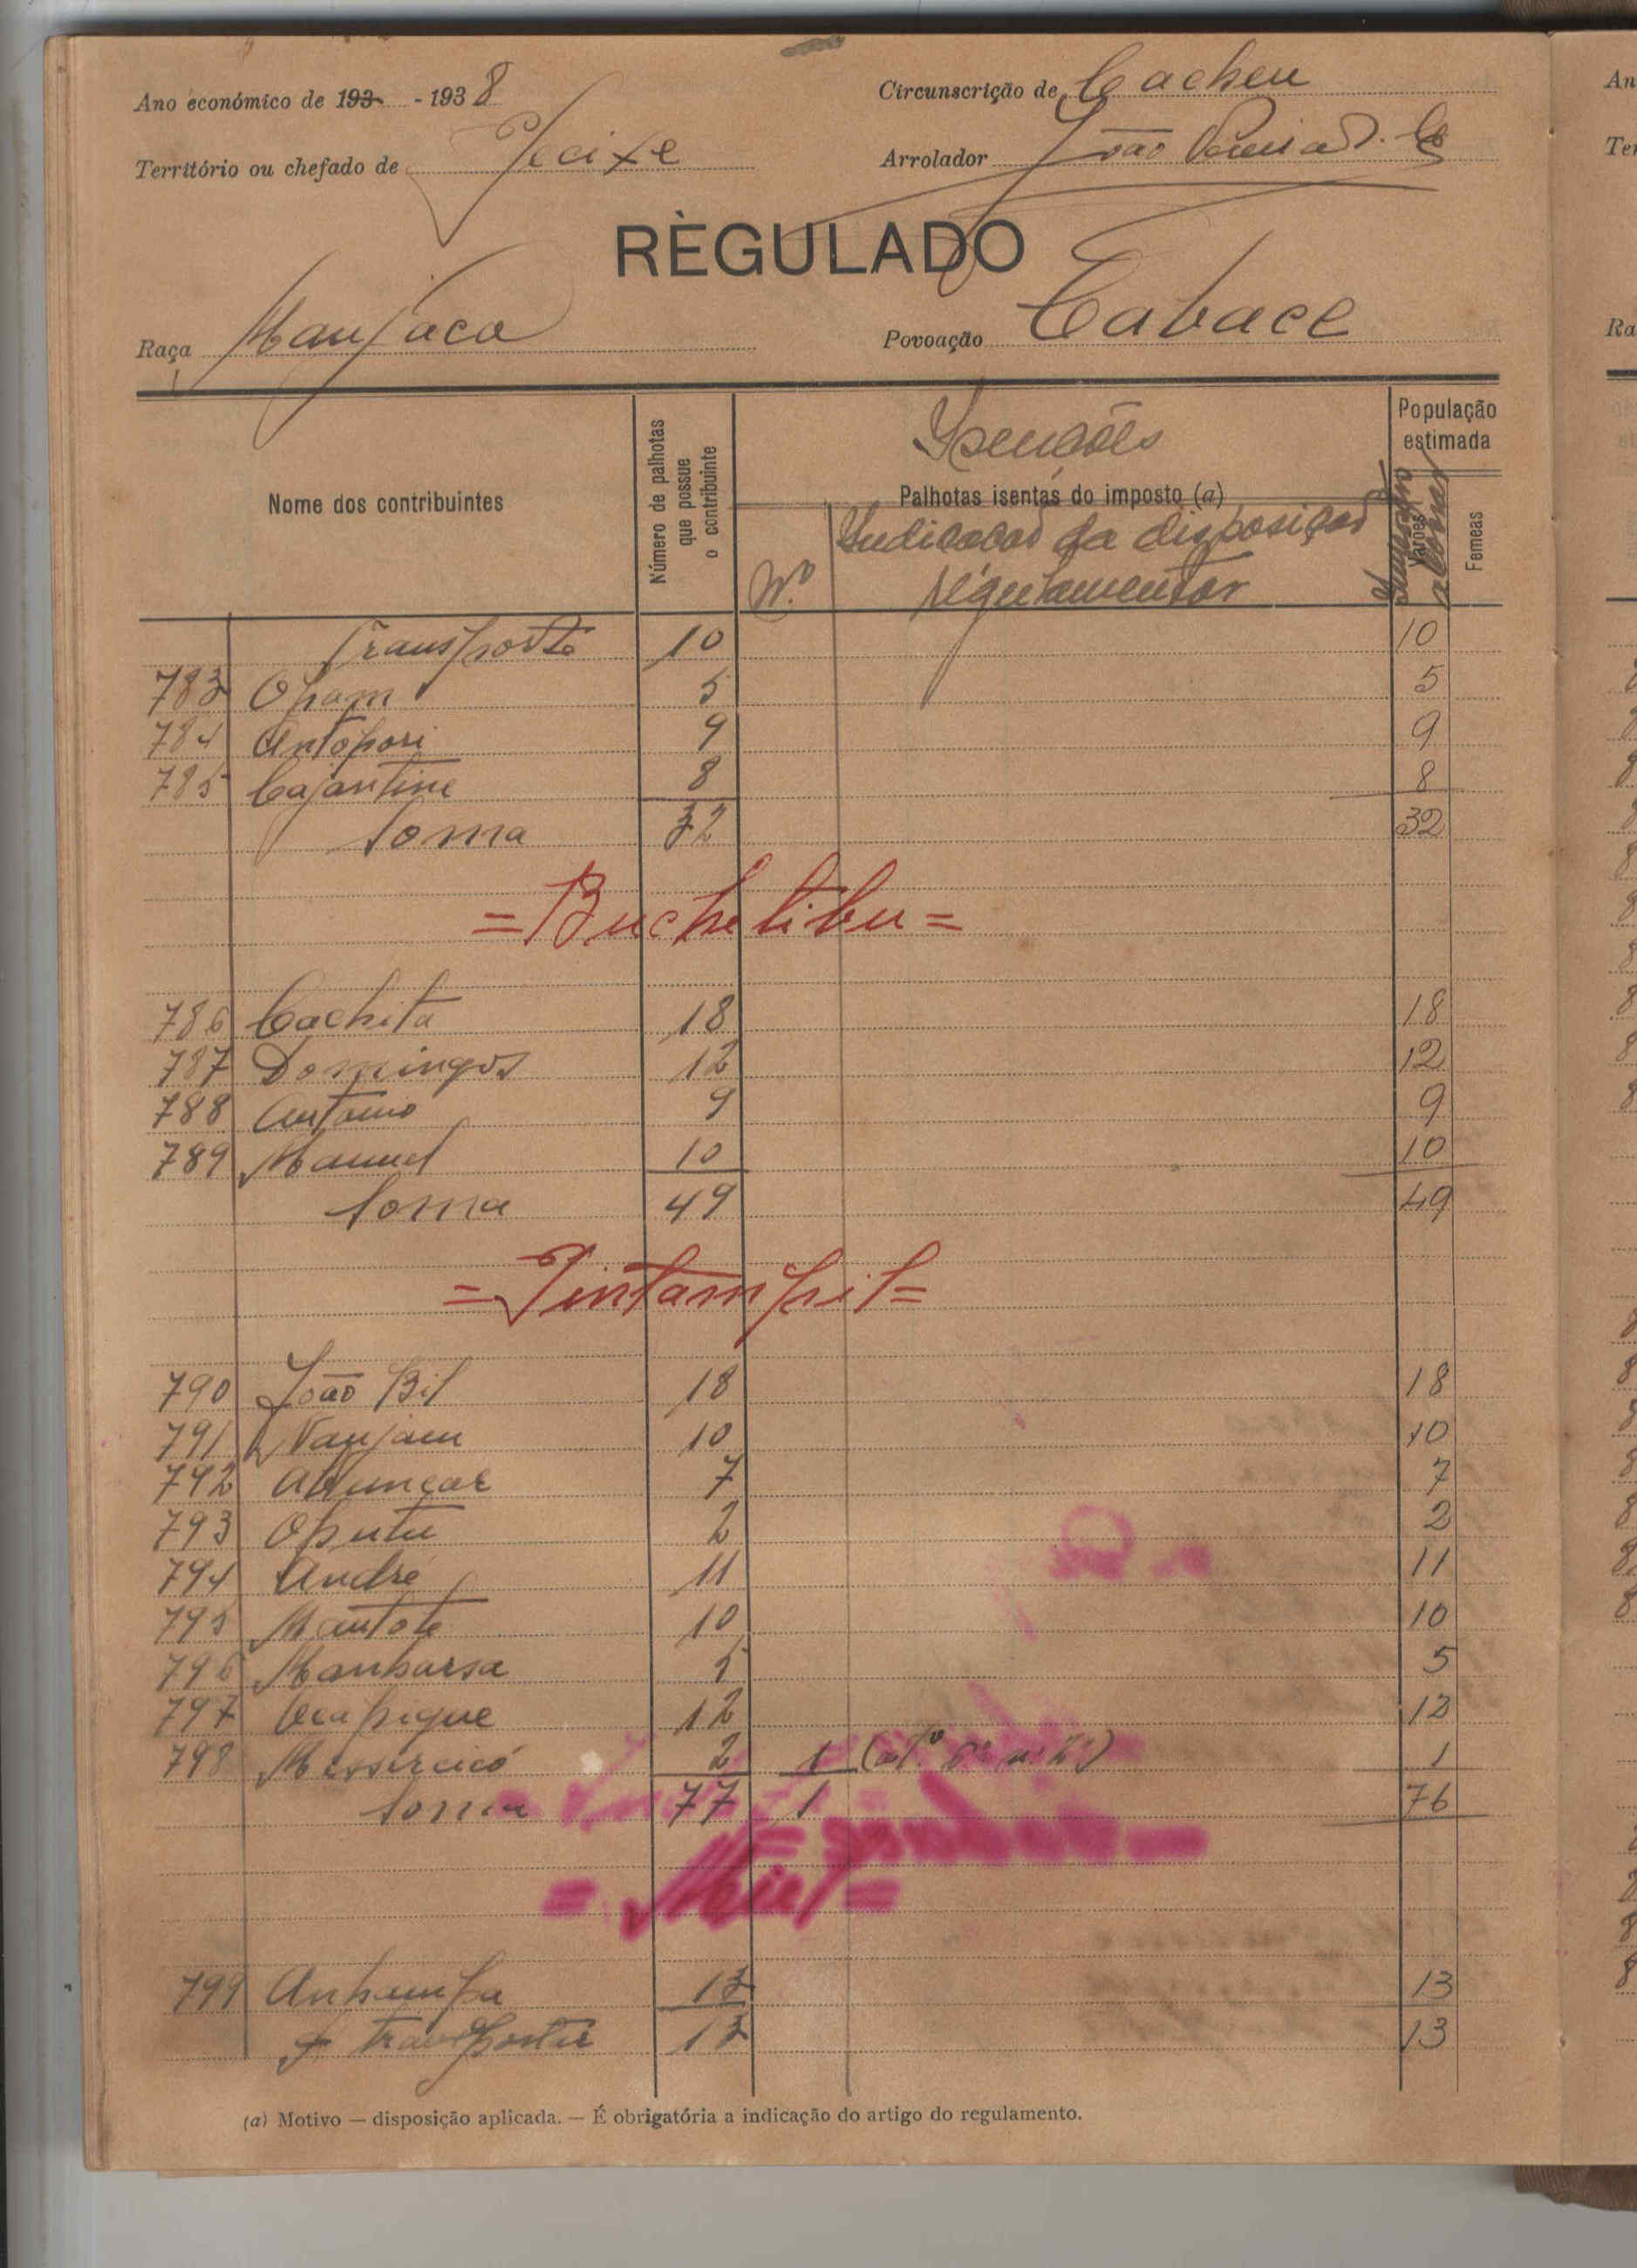 Ano económico de 193 - 1938 Circunscrição de Cacheu
Território ou chefado de Jecixe Arrolador João
REGULADO
Raça Manjaca Povoação Cabace
Nome dos contribuintes
Número de palhotas que possue o contribuinte
Isenções
Palhotas isentas do imposto (a)
N.º Indicação da disposição regulamentar
População estimada
Varões
Femeas
Transporte 10 10
783 Opam 5 5
784 Antopori 9 9
785 Cajantine 8 8
Soma 32 32
= Buchelibu =
786 Cachita 18 18
787 Domingos 12 12
788 Antonio 9 9
789 Manuel 10 10
Soma 49 49
= Jintampil =
790 João Bil 18 18
791 Nanjam 10 10
792 7 7
793 Oputu 2 2
794 André 11 11
795 Mantote 10 10
796 Manbarsa 5 5
797 12 12
798 2 1 1
Soma 77 1 76
799 13 13
A transportar 13 13
(a) Motivo — disposição aplicada. — É obrigatória a indicação do artigo do regulamento.